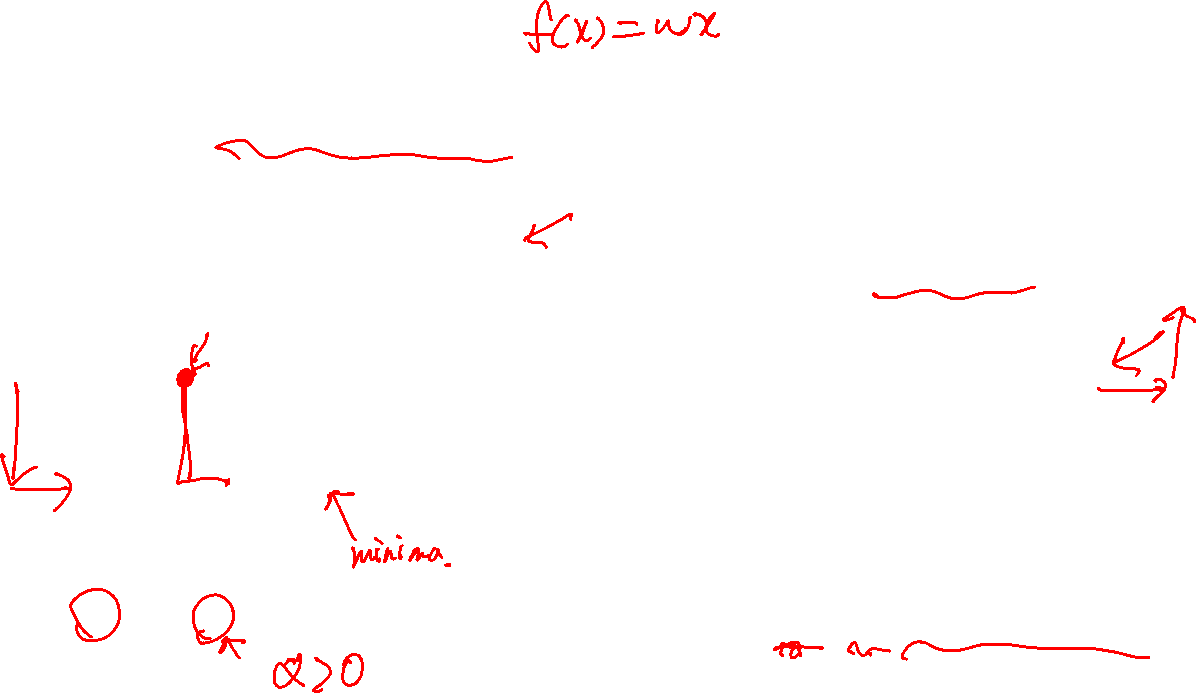 f(x)=wx
minima.
α≥0